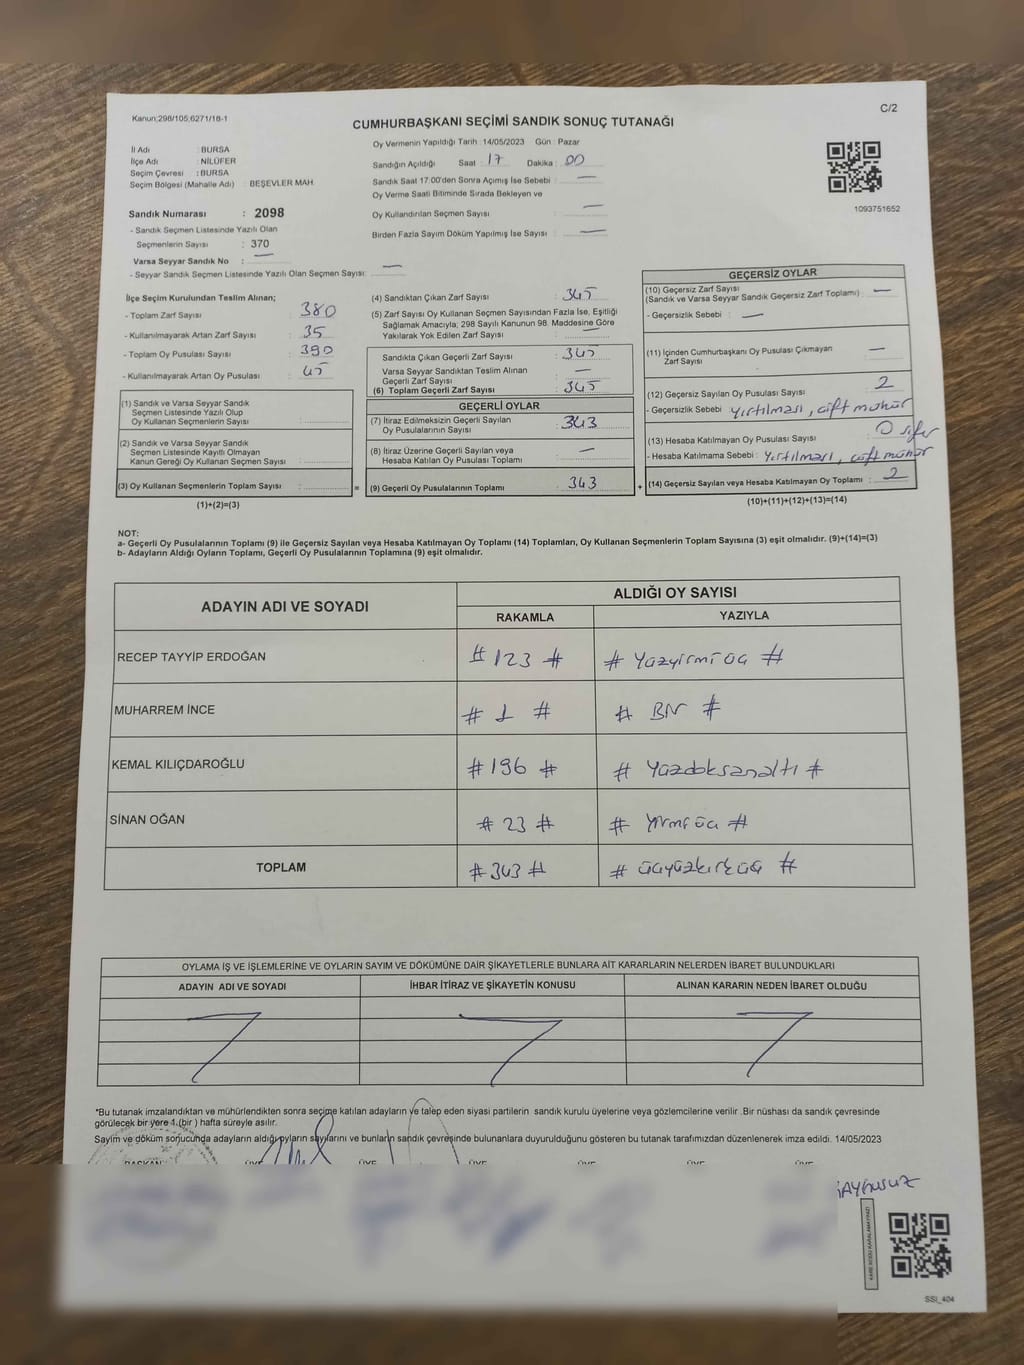 Kanun;298/105;6271/18-1
C/2
CUMHURBAŞKANI SEÇİMİ SANDIK SONUÇ TUTANAĞI
Oy Vermenin Yapıldığı Tarih :14/05/2023 Gün : Pazar
İl Adı : BURSA
İlçe Adı : NİLÜFER
Seçim Çevresi : BURSA
Seçim Bölgesi (Mahalle Adı) : BEŞEVLER MAH.
Sandığın Açıldığı Saat : 17 Dakika : 00
Sandık Saat 17:00'den Sonra Açımış İse Sebebi : —
Oy Verme Saati Bitiminde Sırada Bekleyen ve
Oy Kullandırılan Seçmen Sayısı : —
Birden Fazla Sayım Döküm Yapılmış İse Sayısı : —
1093751652
Sandık Numarası : 2098
- Sandık Seçmen Listesinde Yazılı Olan
Seçmenlerin Sayısı : 370
Varsa Seyyar Sandık No : —
- Seyyar Sandık Seçmen Listesinde Yazılı Olan Seçmen Sayısı: —
İlçe Seçim Kurulundan Teslim Alınan;
- Toplam Zarf Sayısı : 380
- Kullanılmayarak Artan Zarf Sayısı : 35
- Toplam Oy Pusulası Sayısı : 390
- Kullanılmayarak Artan Oy Pusulası : 45
(1) Sandık ve Varsa Seyyar Sandık
Seçmen Listesinde Yazılı Olup
Oy Kullanan Seçmenlerin Sayısı :
(2) Sandık ve Varsa Seyyar Sandık
Seçmen Listesinde Kayıtlı Olmayan
Kanun Gereği Oy Kullanan Seçmen Sayısı :
(3) Oy Kullanan Seçmenlerin Toplam Sayısı :
(1)+(2)=(3)
(4) Sandıktan Çıkan Zarf Sayısı : 345
(5) Zarf Sayısı Oy Kullanan Seçmen Sayısından Fazla İse, Eşitliği
Sağlamak Amacıyla; 298 Sayılı Kanunun 98. Maddesine Göre
Yakılarak Yok Edilen Zarf Sayısı : —
Sandıkta Çıkan Geçerli Zarf Sayısı : 345
Varsa Seyyar Sandıktan Teslim Alınan
Geçerli Zarf Sayısı : —
(6) Toplam Geçerli Zarf Sayısı : 345
GEÇERLİ OYLAR
(7) İtiraz Edilmeksizin Geçerli Sayılan
Oy Pusulalarının Sayısı : 343
(8) İtiraz Üzerine Geçerli Sayılan veya
Hesaba Katılan Oy Pusulası Toplamı : —
= (9) Geçerli Oy Pusulalarının Toplamı : 343 +
GEÇERSİZ OYLAR
(10) Geçersiz Zarf Sayısı
(Sandık ve Varsa Seyyar Sandık Geçersiz Zarf Toplamı) : —
- Geçersizlik Sebebi : —
(11) İçinden Cumhurbaşkanı Oy Pusulası Çıkmayan
Zarf Sayısı : —
(12) Geçersiz Sayılan Oy Pusulası Sayısı : 2
- Geçersizlik Sebebi : Yırtılması, çift mühür
(13) Hesaba Katılmayan Oy Pusulası Sayısı : 0 sıfır
- Hesaba Katılmama Sebebi : Yırtılması, çift mühür
(14) Geçersiz Sayılan veya Hesaba Katılmayan Oy Toplamı : 2
(10)+(11)+(12)+(13)=(14)
NOT:
a- Geçerli Oy Pusulalarının Toplamı (9) ile Geçersiz Sayılan veya Hesaba Katılmayan Oy Toplamı (14) Toplamları, Oy Kullanan Seçmenlerin Toplam Sayısına (3) eşit olmalıdır. (9)+(14)=(3)
b- Adayların Aldığı Oyların Toplamı, Geçerli Oy Pusulalarının Toplamına (9) eşit olmalıdır.
ADAYIN ADI VE SOYADI
ALDIĞI OY SAYISI
RAKAMLA YAZIYLA
RECEP TAYYİP ERDOĞAN # 123 # # Yüzyirmi üç #
MUHARREM İNCE # 1 # # BİR #
KEMAL KILIÇDAROĞLU # 196 # # Yüzdoksanaltı #
SİNAN OĞAN # 23 # # Yirmi üç #
TOPLAM # 343 # # üçyüzkırküç #
OYLAMA İŞ VE İŞLEMLERİNE VE OYLARIN SAYIM VE DÖKÜMÜNE DAİR ŞİKAYETLERLE BUNLARA AİT KARARLARIN NELERDEN İBARET BULUNDUKLARI
ADAYIN ADI VE SOYADI İHBAR İTİRAZ VE ŞİKAYETİN KONUSU ALINAN KARARIN NEDEN İBARET OLDUĞU
*Bu tutanak imzalandıktan ve mühürlendikten sonra seçime katılan adayların ve talep eden siyasi partilerin sandık kurulu üyelerine veya gözlemcilerine verilir .Bir nüshası da sandık çevresinde
görülecek bir yere 1.(bir ) hafta süreyle asılır.
Sayım ve döküm sonucunda adayların aldığı oyların sayılarını ve bunların sandık çevresinde bulunanlara duyurulduğunu gösteren bu tutanak tarafımızdan düzenlenerek imza edildi. 14/05/2023
BAŞKAN ÜYE ÜYE ÜYE ÜYE ÜYE ÜYE
SSI_404